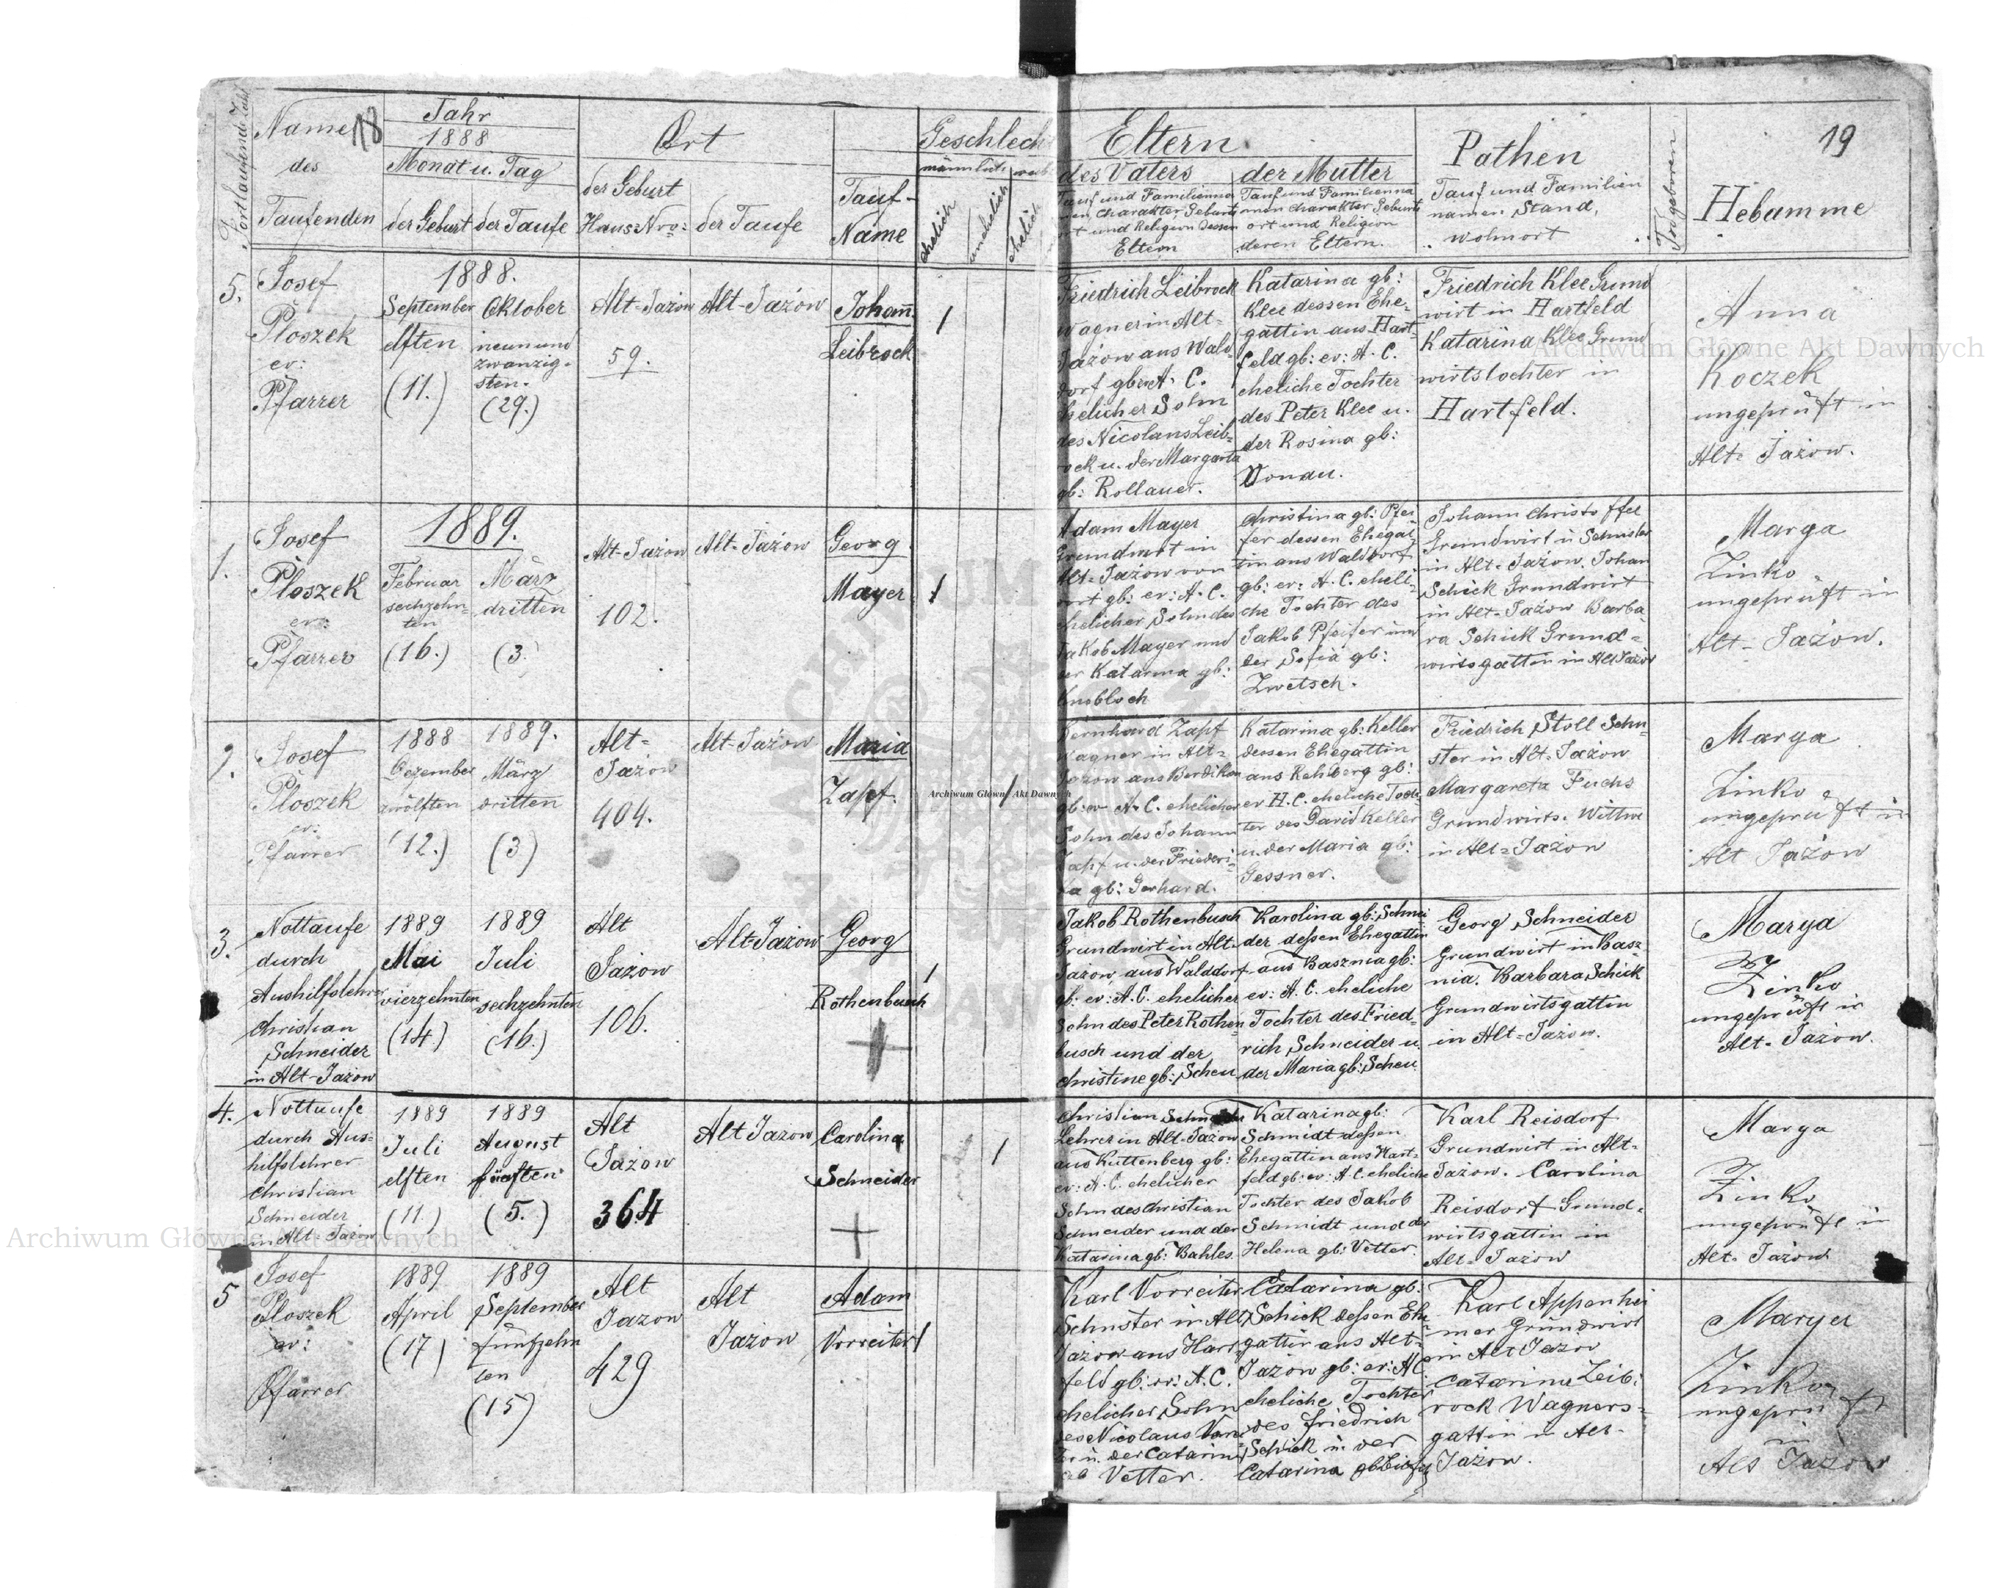 Fortlaufende Zahl
Name
des
Taufenden
18
Jahr
1888
Monat u. Tag
der Geburt der Taufe
Ort
der Geburt
Haus-Nro: der Taufe
Tauf-
Name
Geschlech
männlich
ehelich
unehelich
ehelich
Eltern
des Vaters
Tauf und Familienna
men, Charakter Geburts
ort und Religion dessen
Eltern
der Mutter
Tauf und Familienna
men Charakter Geburts
ort und Religion
deren Eltern.
Pathen
Tauf und Familien
namen, Stand,
wohnort
Todtgeboren
19
Hebamme
5.
Josef
Ploszek
ev:
Pfarrer
1888.
September
elften
(11.)
Oktober
neunund
zwanzig-
sten.
(29.)
Alt-Jazow
59.
Alt-Jazow
Johann
Leibrock
1
Friedrich Leibrock
Wagner in Alt-
Jazow aus Wald
dorf gb: ev: A. C.
ehelicher Sohn
des Nicolaus Leib-
rock u. der Margareta
gb: Rollauer.
Katarina gb:
Klee dessen Ehe-
gattin aus Hart-
feld gb: ev: A. C.
eheliche Tochter
des Peter Klee u.
der Rosina gb:
Donau.
Friedrich Klee Grund
wirt in Hartfeld
Katarina Klee Grund
wirtstochter in
Hartfeld.
Anna
Koczek
ungeprüft in
Alt-Jazow.
1.
Josef
Ploszek
ev:
Pfarrer
1889.
Februar
sechzehn-
ten
(16.)
März
dritten
(3.)
Alt-Jazow
102.
Alt-Jazow
Georg
Mayer
1
Adam Mayer
Grundwirt in
Alt-Jazow von
dort gb: ev: A. C.
ehelicher Sohn des
Jakob Mayer und
der Katarina gb:
Knobloch
Christina gb: Pfei
fer dessen Ehegat-
tin aus Walddorf
gb: ev: A. C. eheli-
che Tochter des
Jakob Pfeifer und
der Sofia gb:
Zwetsch.
Johann Christoffel
Grundwirt u Schuster
in Alt-Jazow. Johan
Schick Grundwirt
in Alt-Jazow Barba
ra Schick Grund-
wirtsgattin in Alt Jazow
Marga
Zinko
ungeprüft in
Alt-Jazow.
2.
Josef
Ploszek
ev:
Pfarrer
1888
Dezember
zwölften
(12.)
1889.
März
dritten
(3.)
Alt-
Jazow
404.
Alt-Jazow
Maria
Zapf.
1
Bernhard Zapf
Wagner in Alt-
Jazow aus
gb: ev A. C. ehelicher
Sohn des Johann
Zapf u. der Friederi-
ka gb: Gerhard.
Katarina gb: Keller
dessen Ehegattin
aus Rehberg gb:
ev H. C. eheliche Toch-
ter des David Keller
u. der Maria gb:
Gessner.
Friedrich Stoll Schu-
ster in Alt-Jazow
Margareta Fuchs
Grundwirts-Wittwe
in Alt-Jazow
Marga
Zinko
ungeprüft in
Alt Jazow
3.
Nottaufe
durch
Aushilfslehrer
Christian
Schneider
in Alt-Jazow
1889
Mai
vierzehnten
(14)
1889
Juli
sechzehnten
(16.)
Alt
Jazow
106.
Alt-Jazow
Georg
Rothenbusch
1
Jakob Rothenbusch
Grundwirt in Alt-
Jazow, aus Walddorf
gb: ev: A. C. ehelicher
Sohn des Peter Rothen
busch und der
Christine gb: Scheu
Karolina gb: Schnei
der deßen Ehegattin
aus Basznia gb:
ev: A. C. eheliche
Tochter des Fried-
rich Schneider u.
der Maria gb: Scheu.
Georg Schneider
Grundwirt in Basz
nia. Barbara Schick
Grundwirtsgattin
in Alt-Jazow.
Marya
Zinko
ungeprüft in
Alt-Jazow.
4.
Nottaufe
durch Aus-
hilfslehrer
Christian
Schneider
in Alt-Jazow
1889
Juli
elften
(11.)
1889
August
fünften
(5.)
Alt
Jazow
364
Alt Jazow
Carolina
Schneider
1
Christian Schneider
Lehrer in Alt-Jazow
aus Kuttenberg gb:
ev: A. C. ehelicher
Sohn des Christian
Schneider und der
Katarina gb: Bahles
Katarina gb:
Schmidt deßen
Ehegattin aus Hart-
feld gb: ev: A. C. eheliche
Tochter des Jakob
Schmidt und der
Helena gb: Vetter.
Karl Reisdorf
Grundwirt in Alt-
Jazow. Carolina
Reisdorf Grund-
wirtsgattin in
Alt-Jazow
Marya
Zinko
ungeprüft in
Alt-Jazow
5
Josef
Ploszek
ev:
Pfarrer
1889
April
(17)
1889
September
fünfzehn
ten
(15)
Alt
Jazow
429
Alt
Jazow
Adam
Vorreiter
1
Karl Vorreiter
Schuster in Alt
Jazow aus Hart-
feld gb: ev: A. C.
ehelicher Sohn
des Nicolaus Vorrei
ter u. der Catarina
Vetter.
Catarina gb:
Schick deßen Ehe
gattin aus Alt-
Jazow gb: ev: A C.
eheliche Tochter
des Friedrich
Schick u. der
Catarina gb
Karl Appenhei
mer Grundwirt
in Alt Jazow
Catarina Leib:
rock Wagners-
gattin in Alt-
Jazow.
Marya
Zinko
ungeprüft
in
Alt Jazow
Archiwum Główne Akt Dawnych
Archiwum Główne Akt Dawnych
Archiwum Główne Akt Dawnych